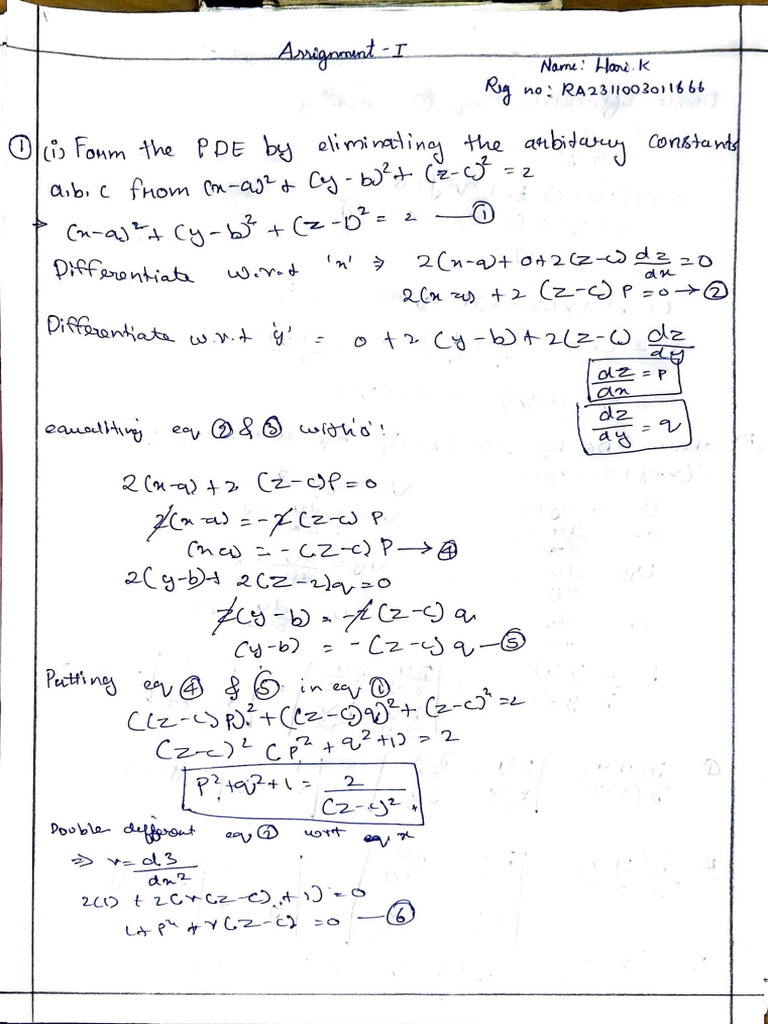 Assignment - I
Name: Hari.K
Reg no: RA2311003011666
① (i) Form the PDE by eliminating the arbitary constants
a.b.c from (x-a)² + (y-b)² + (z-c)² = 2
→ (x-a)² + (y-b)² + (z-c)² = 2 —①
Differentiate w.r.t 'x' ⇒ 2(x-a) + 0 + 2(z-c) dz/dx = 0
2(x-a) + 2 (z-c) P = 0 → ②
Differentiate w.r.t 'y' = 0 + 2 (y-b) + 2(z-c) dz/dy
dz/dx = P
dz/dy = q
equaliting eq ② & ③ with 'o'.
2(x-a) + 2 (z-c)P = 0
2(x-a) = -2(z-c) P
(x-a) = -(z-c) P → ④
2(y-b) + 2(z-2)q = 0
2(y-b) = -2(z-c) q
(y-b) = -(z-c) q —⑤
Putting eq ④ & ⑤ in eq ①
((z-c) P)² + ((z-c)q)² + (z-c)² = 2
(z-c)² (P² + q² + 1) = 2
P² + q² + 1 = 2/(z-c)²
Double different eq ② wrt eq x
⇒ r = d3/dx²
2(1) + 2(r(z-c) + 1) = 0
1 + P² + r(z-c) = 0 —⑥